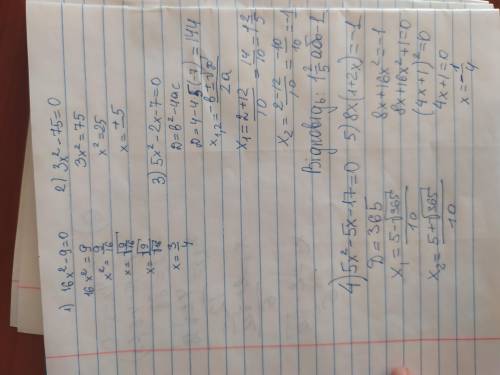 1) 16x²-9=0
16x²=9
x²=9/16
x=√9/16
x=√9/√16
x=3/4
2) 3x²-75=0
3x²=75
x²=25
x=+5
3) 5x²-2x-7=0
D=b²-4ac
D=4-4·5(-7)=144
x1,2=-b±√D/2a
x1=2+12/10=14/10=1 2/5
x2=2-12/10=-10/10=-1
Відповідь: 1 2/5 або -1
4) 5x²-5x-17=0
D=365
x1=5-√365/10
x2=5+√365/10
5) 8x(1+2x)=-1
8x+16x²=-1
8x+16x²+1=0
(4x+1)²=0
4x+1=0
x=-1/4